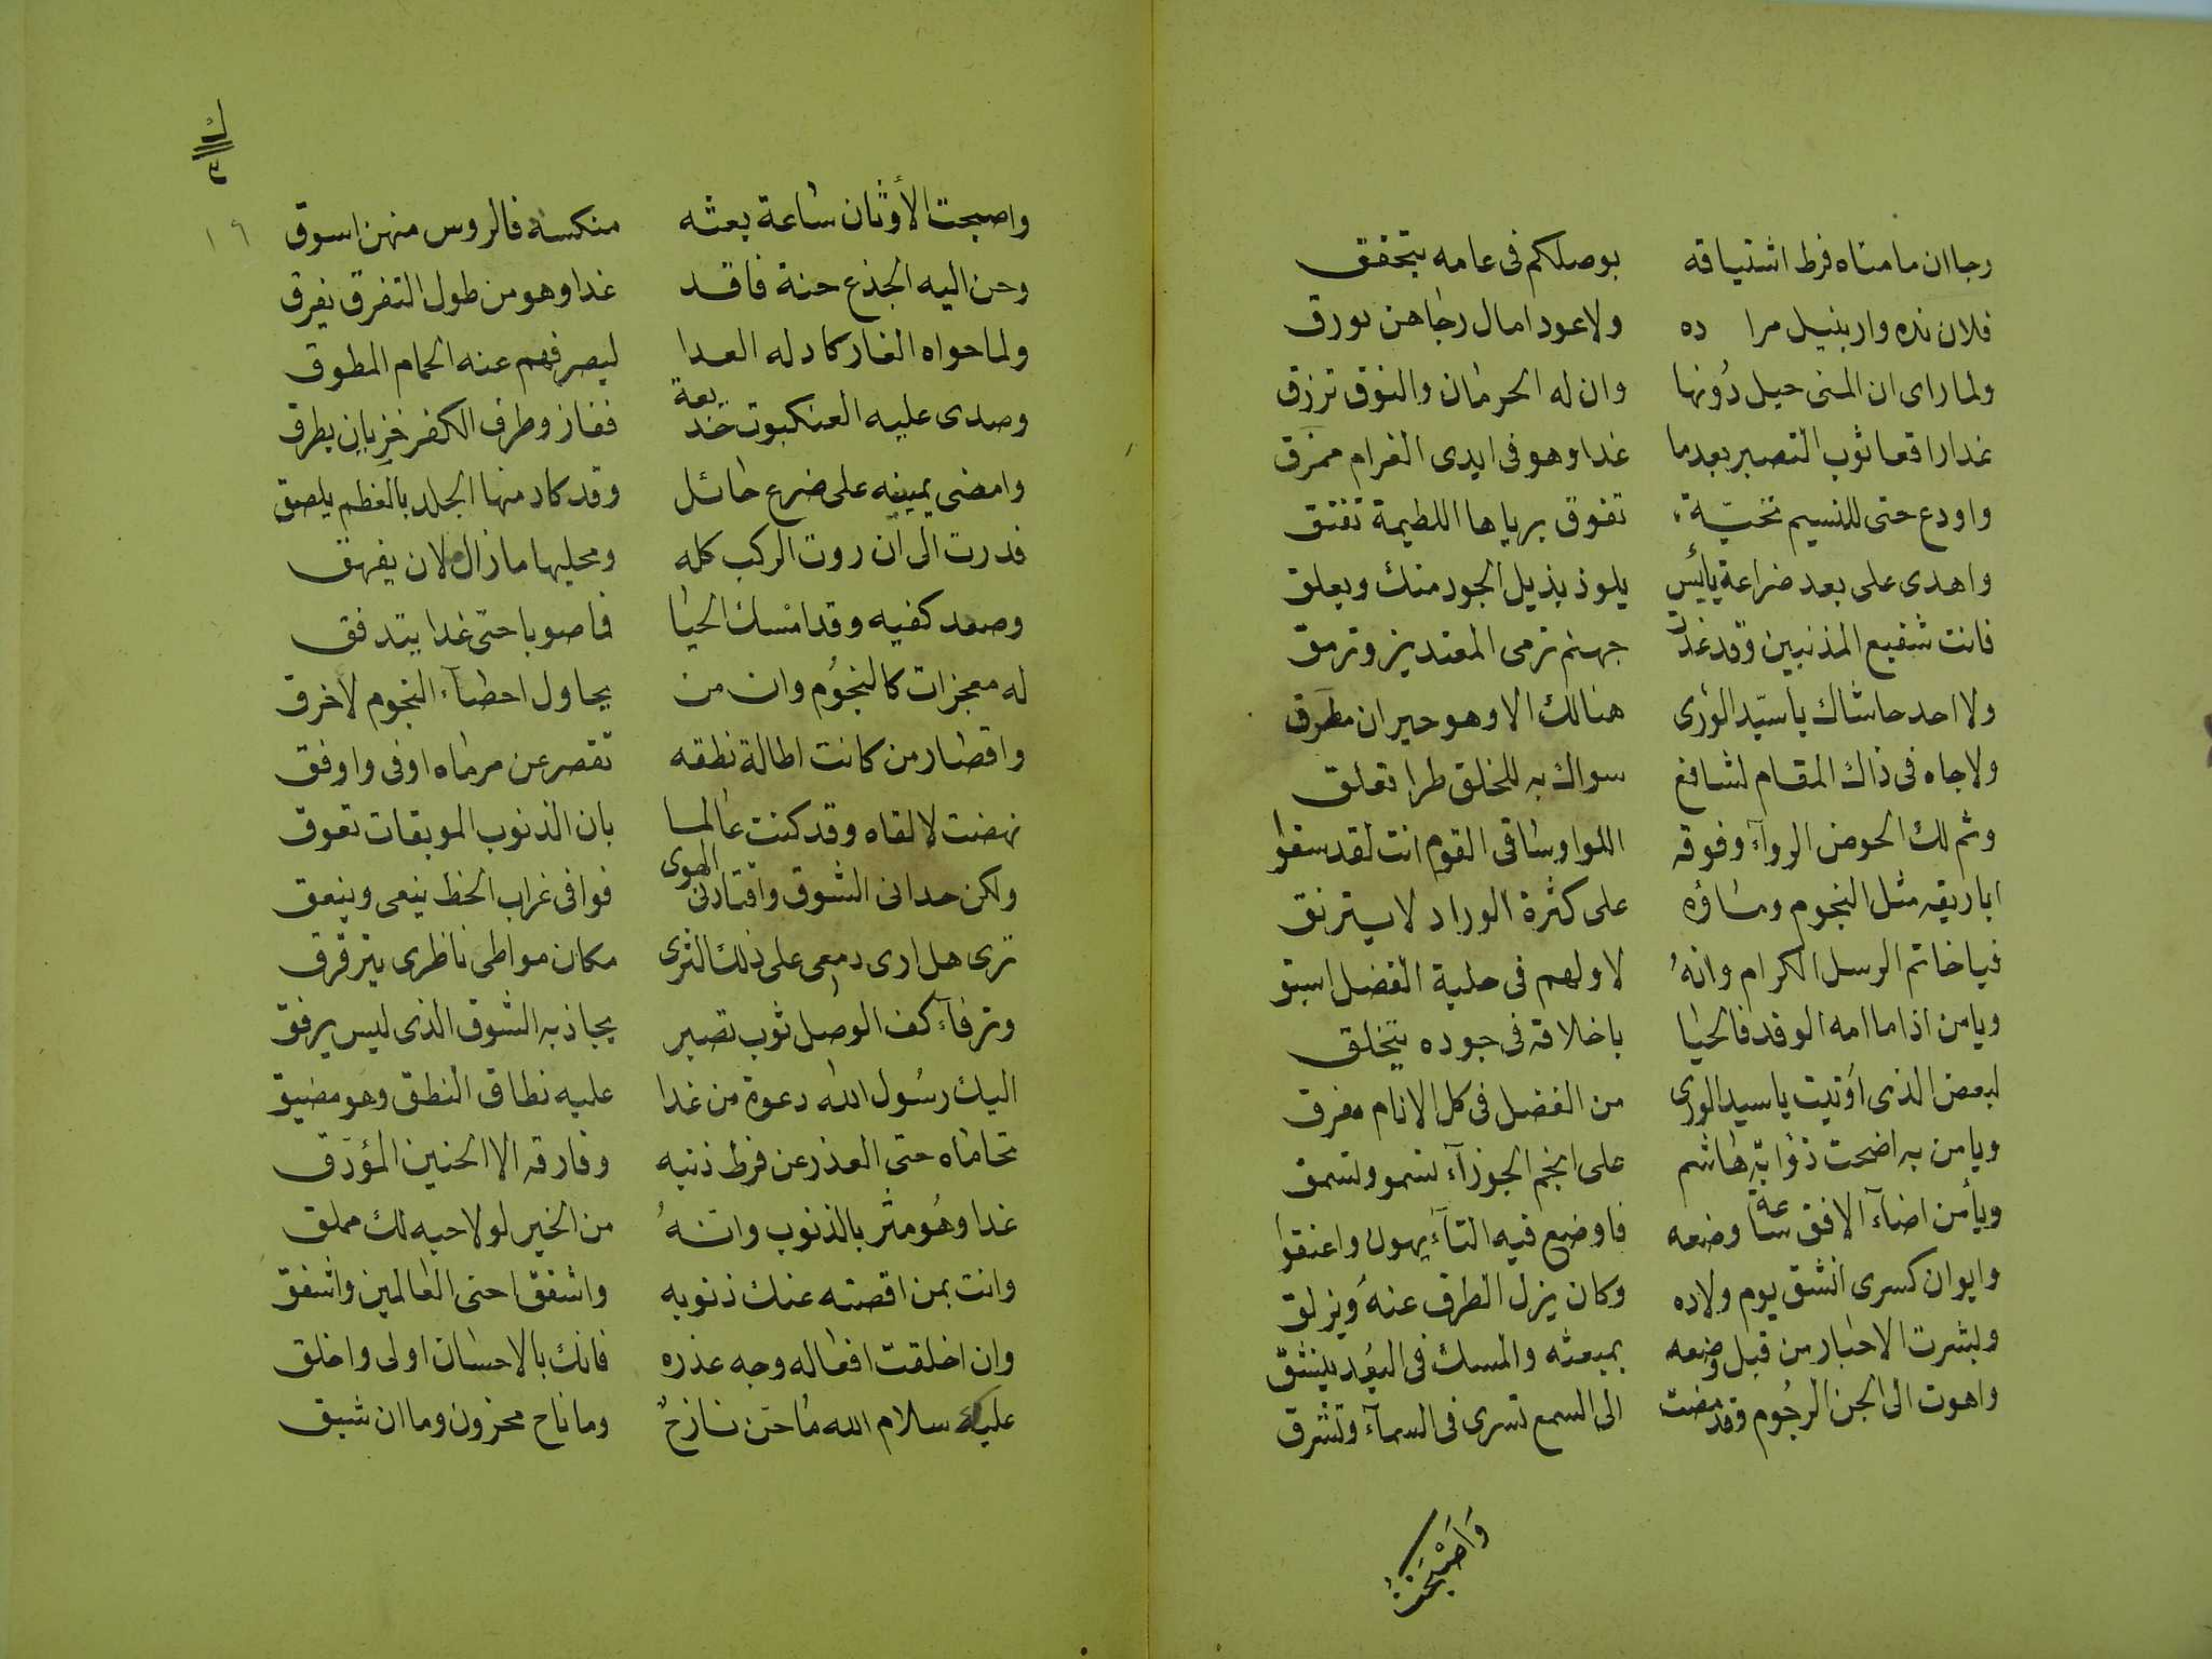 رجا ان ما مناه فرط اشتياقه بوصلكم فى عامه يتحقق
فلان نده وار بنيل مرا ده ولا عود امال رجاهن يورق
ولما راى ان المنى حيل دونها وان له الحرمان والنوق ترزق
غدا راقعا ثوب التصبر بعدما غدا وهو فى ايدى الغرام ممزق
واودع حتى للنسيم تحيّة تفوق برياها اللطيمة تفتق
واهدى على بعد ضراعة يائس يلوذ بذيل الجود منك ويعلق
فانت شفيع المذنبين وقد غدت جهنم ترمى المعتدين وترمق
ولا احد حاشاك يا سيّد الورى هنالك الا وهو حيران مطرق
ولا جاه فى ذاك المقام لشافع سواك به للخلق طرا تعلق
وثم لك الحوض الروآء وفوقه اللوا وساقى القوم انت لقد سقوا
اباريقه مثل النجوم وماؤه على كثرة الوراد لا يسترنق
فيا خاتم الرسل الكرام وانهُ لاولهم فى حلبة الفضل اسبق
ويا من اذا ما امه الوفد فالحيا باخلاقه فى جوده يتخلق
لبعض الذى أوتيت يا سيد الورى من الفضل فى كل الانام مفرق
ويا من به اضحت ذؤابة هاشم على انجم الجوزآء تسمو وتسمق
ويأمن اضآء الافق ساعة وضعه فاوضع فيه التآئهون واعنقوا
وايوان كسرى انشق يوم ولاده وكان يزل الطرف عنهُ ويزلق
وبشرت الاحبار من قبل وضعه بمبعثه والمسك فى البُعد ينشق
واهوت الى الجن الرجُوم وقد مضت الى السمع تسرى فى السمآء وتشرق
وَاصْبَحَتُ
ك
٣
١٦
واصبحت الأوثان ساعة بعثه منكسة فالروس منهن اسوق
وحن اليه الجذع حنة فاقد غدا وهو من طول التفرق يفرق
ولما حواه الغار كاد له العدا ليصرفهم عنه الحمام المطوق
وصدى عليه العنكبوت خديعة ففاز وطرف الكفر خزيان يطرق
وامضى يمينه على ضرع حائل وقد كاد منها الجلد بالعظم يلصق
فدرت الى ان روت الركب كله ومحلبها ما زال ملان يفهق
وصعد كفيه وقد امسك الحيا فاصوبا حتى غدا يتدفق
له معجزات كالنجُوم وان من يحاول احصآء النجوم لاخرق
واقصار من كانت اطالة نطقه تقصر عن مرماه اوفى واوفق
نهضت لالقاه وقد كنت عالما بان الذنوب الموبقات تعوق
ولكن حدانى الشوق واقتادنى الهوى فوافى غراب الحظ ينعى وينعق
ترى هل ارى دمعى على ذلك الثرى مكان مواطى ناظرى يترقرق
وترفآء كف الوصل ثوب تصبر يجاذبه الشوق الذى ليس يرفق
اليك رسُول الله دعوة من غدا عليه نطاق النطق وهو مضيق
تحاماه حتى العذر عن فرط ذنبه وفارقه الا الحنين المؤرّق
غدا وهُو مثر بالذنوب وانهُ من الخير لولا حبه لك مملق
وانت بمن اقصته عنك ذنوبه واشفق احنى العالمين واشفق
وان اخلقت افعاله وجه عذره فانك بالاحسان اولى واخلق
عليك سلام الله ما حنّ نازحٌ وما ناح محزون وما ان شيق